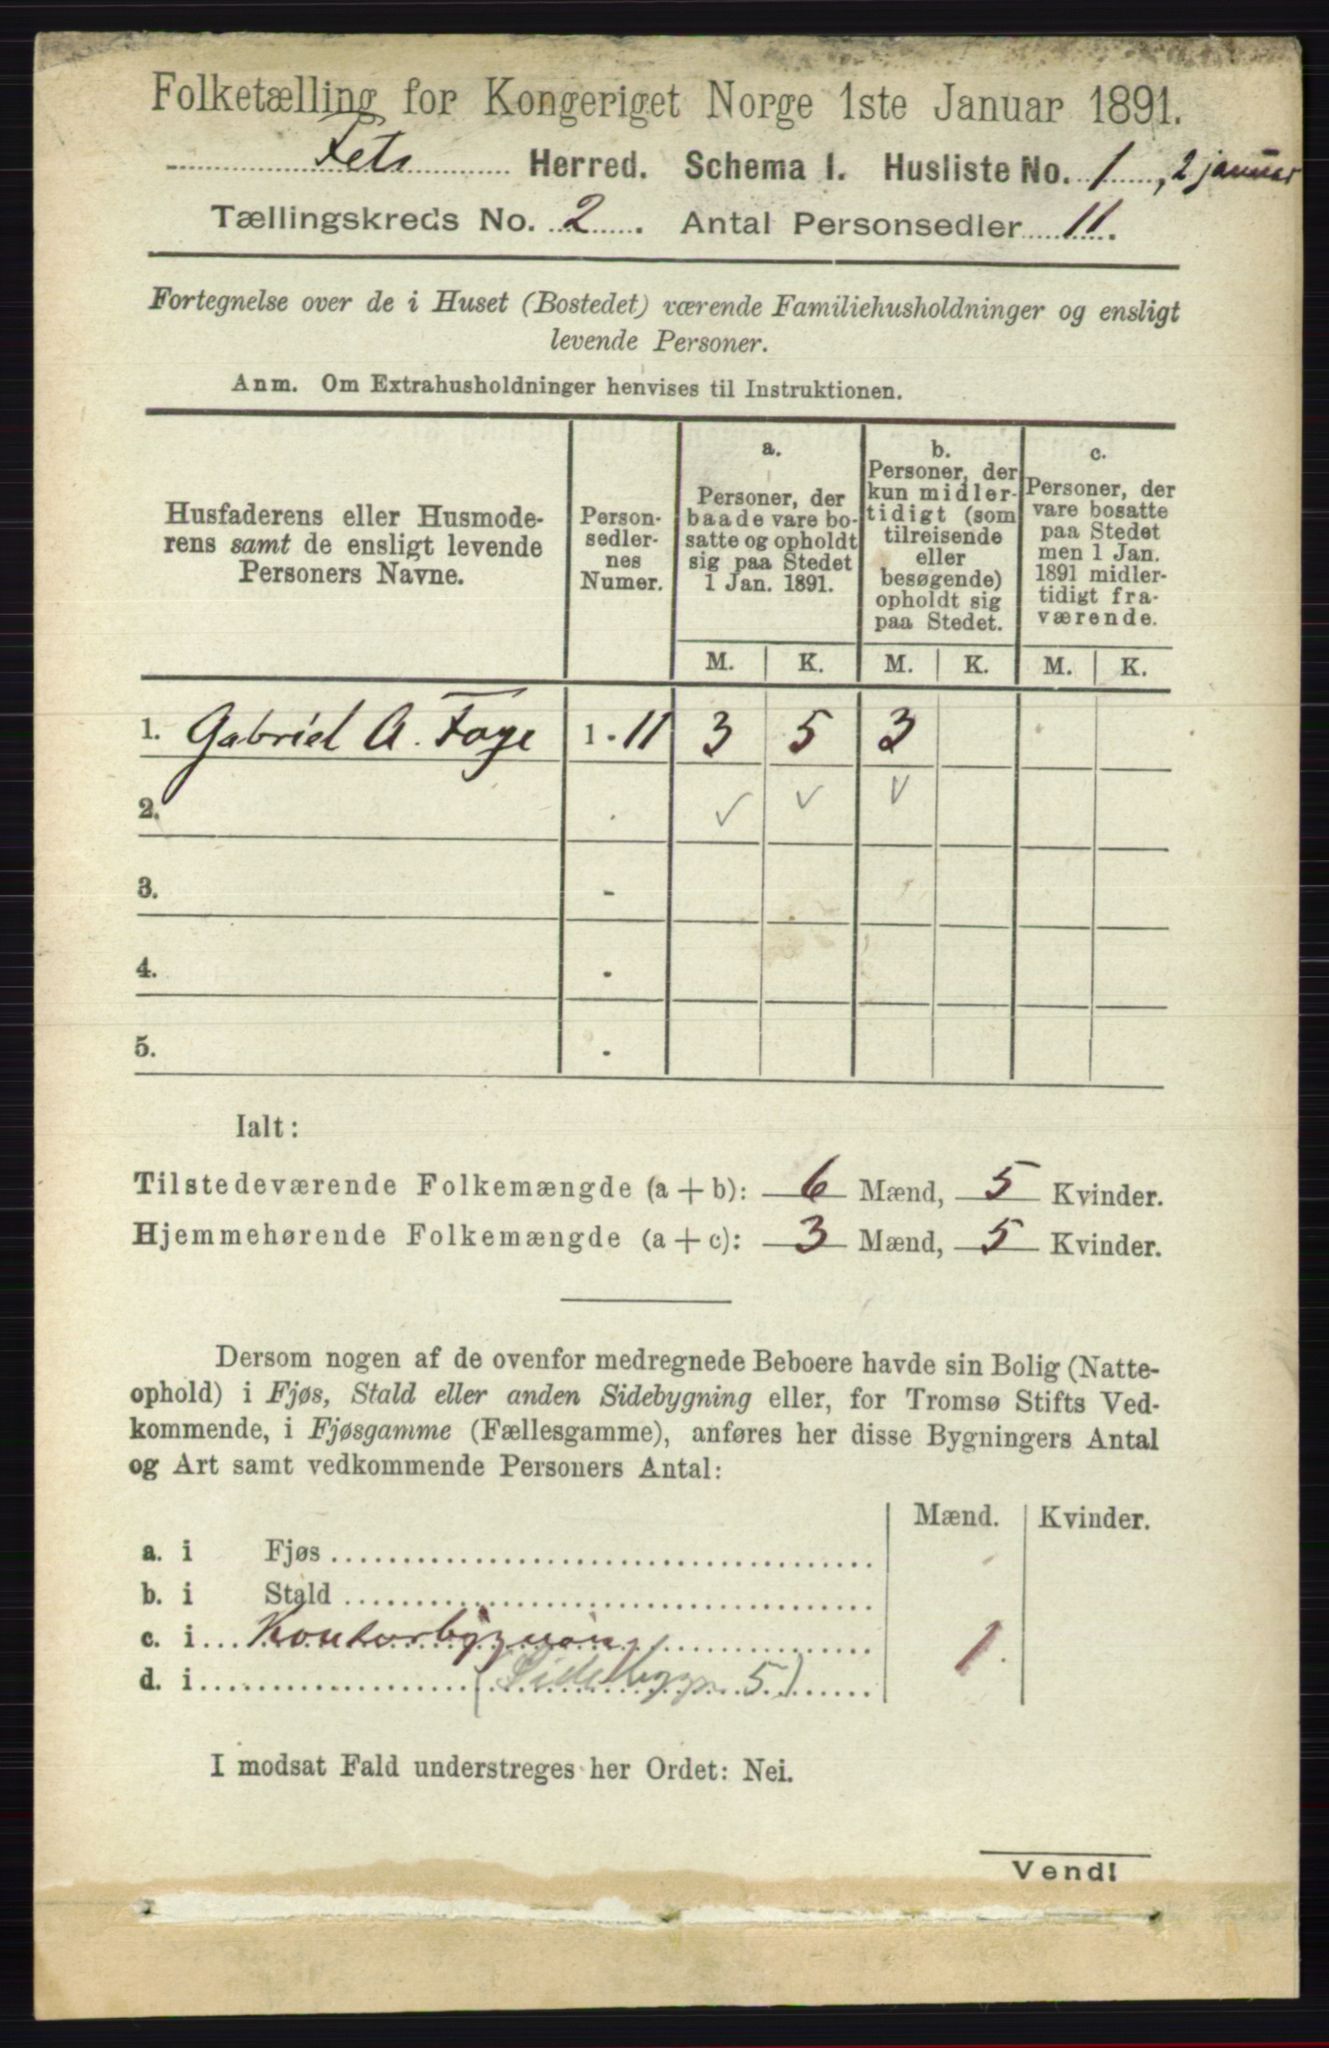 Folketælling for Kongeriget Norge 1ste Januar 1891.
Fets Herred. Schema I. Husliste No. 1, 2 januar
Tællingskreds No. 2. Antal Personsedler 11.
Fortegnelse over de i Huset (Bostedet) værende Familiehusholdninger og ensligt
levende Personer.
Anm. Om Extrahusholdninger henvises til Instruktionen.
Husfaderens eller Husmode-
rens samt de ensligt levende
Personers Navne.
Person-
sedler-
nes
Numer.
a.
Personer, der
baade vare bo-
satte og opholdt
sig paa Stedet
1 Jan. 1891.
b.
Personer, der
kun midler-
tidigt (som
tilreisende
eller
besøgende)
opholdt sig
paa Stedet.
c.
Personer, der
vare bosatte
paa Stedet
men 1 Jan.
1891 midler-
tidigt fra-
værende.
M. K. M. K. M. K.
1. Gabriel A. Faye 1 - 11 3 5 3
2. -
3. -
4. -
5. -
Ialt:
Tilstedeværende Folkemængde (a + b): 6 Mænd, 5 Kvinder.
Hjemmehørende Folkemængde (a + c): 3 Mænd, 5 Kvinder.
Dersom nogen af de ovenfor medregnede Beboere havde sin Bolig (Natte-
ophold) i Fjøs, Stald eller anden Sidebygning eller, for Tromsø Stifts Ved-
kommende, i Fjøsgamme (Fællesgamme), anføres her disse Bygningers Antal
og Art samt vedkommende Personers Antal:
Mænd. Kvinder.
a. i Fjøs
b. i Stald
c. i Kontorbygning 1.
d. i (Sidebygn. 5)
I modsat Fald understreges her Ordet: Nei.
Vend!